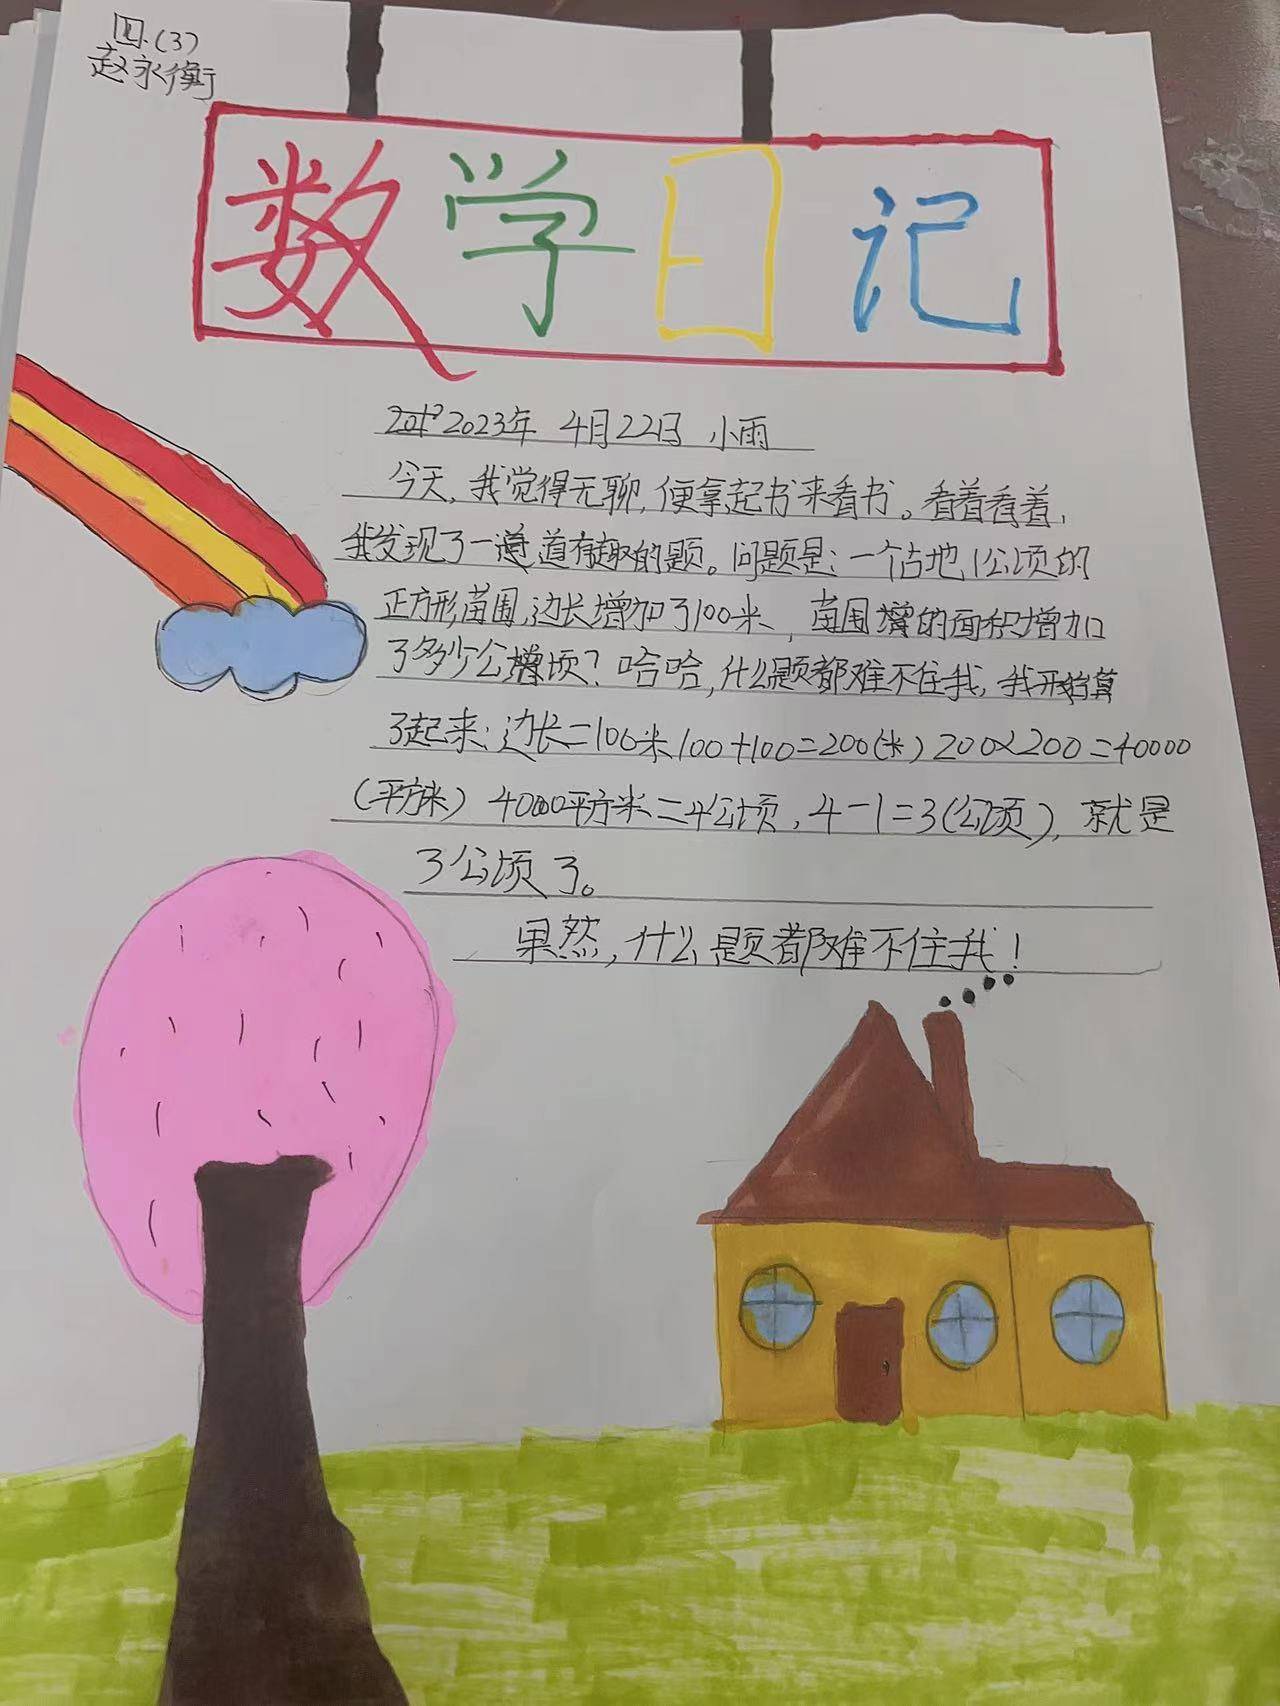 四.(3)
赵永衡
数学日记
2023年 4月22日 小雨
今天,我觉得无聊,便拿起书来看书。看着看着,
我发现了一道有趣的题。问题是:一个占地1公顷的
正方形苗圃,边长增加了100米,苗圃的面积增加
了多少公顷?哈哈,什么题都难不住我,我开始算
了起来:边长=100米100+100=200(米)200×200=40000
(平方米)40000平方米=4公顷,4-1=3(公顷),就是
3公顷了。
果然,什么题都难不住我!